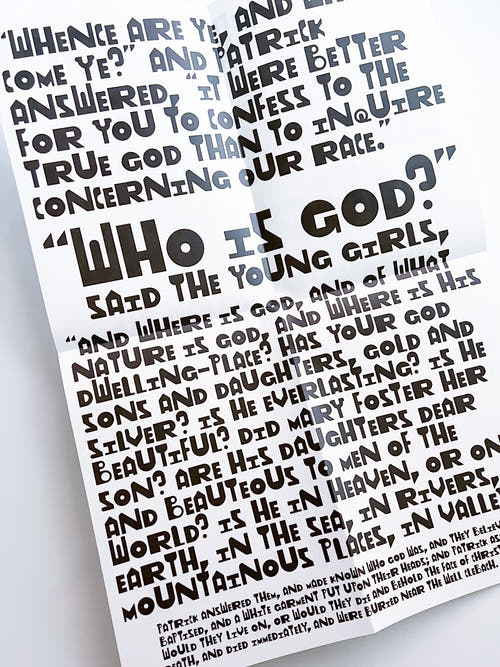 "WHENCE ARE YE, AND
COME YE?" AND PATRICK
ANSWERED, "IT WERE BETTER
FOR YOU TO CONFESS TO THE
TRUE GOD THAN TO INQUIRE
CONCERNING OUR RACE."
"WHO IS GOD?"
SAID THE YOUNG GIRLS,
"AND WHERE IS GOD, AND OF WHAT
NATURE IS GOD, AND WHERE IS HIS
DWELLING-PLACE? HAS YOUR GOD
SONS AND DAUGHTERS, GOLD AND
SILVER? IS HE EVERLASTING? IS HE
BEAUTIFUL? DID MARY FOSTER HER
SON? ARE HIS DAUGHTERS DEAR
AND BEAUTEOUS TO MEN OF THE
WORLD? IS HE IN HEAVEN, OR ON
EARTH, IN THE SEA, IN RIVERS,
MOUNTAINOUS PLACES, IN VALLE
PATRICK ANSWERED THEM, AND MADE KNOWN WHO GOD WAS, AND THEY BELIEV
BAPTISED, AND A WHITE GARMENT PUT UPON THEIR HEADS; AND PATRICK AS
WOULD THEY LIVE ON, OR WOULD THEY DIE AND BEHOLD THE FACE OF CHRIS
DEATH, AND DIED IMMEDIATELY, AND WERE BURIED NEAR THE WELL CLEBACH.